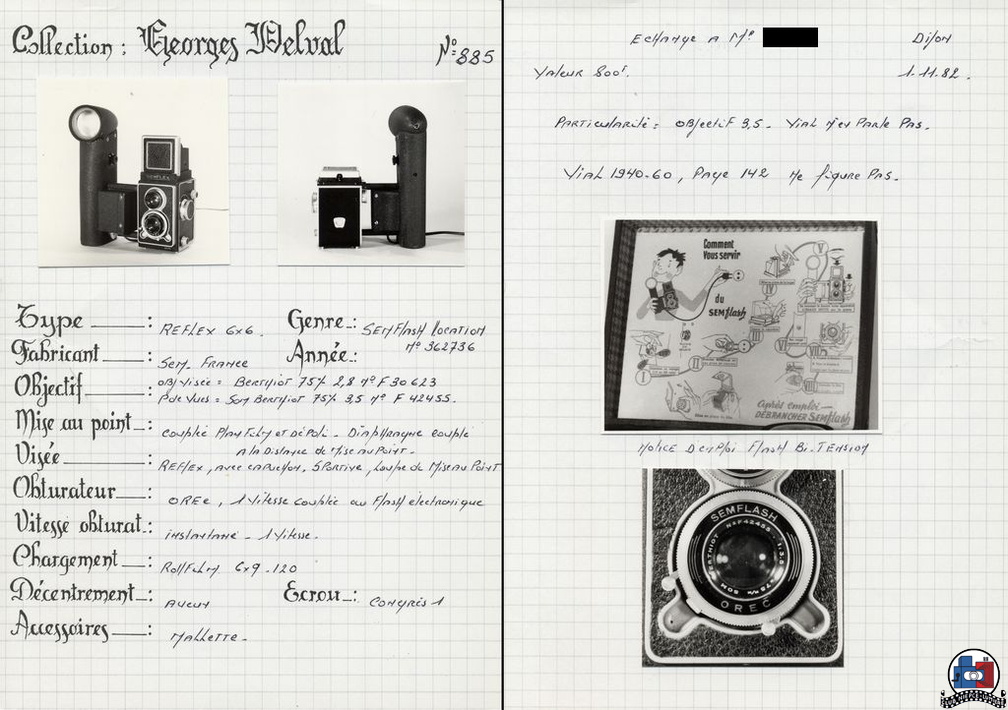 Collection : Georges Delval
N°=885
SEMFLEX
Type : REFLEX 6x6.
Genre : SEMFLASH LOCATION
N° 362736
Fabricant : Sem. FRANCE
Année :
Objectif : OBJ Visée = BERTHIOT 75% 2,8 N° F30623
P de Vues = Som BERTHIOT 75% 3,5 N° F 42455.
Mise au point : couplé Plan Film et DéPoli - Diaphragme couplé
A la Distance de Mise au Point.
Visée : REFLEX, avec capuchon, SPORTIVE, Loupe de Mise au Point
Obturateur : OREC, 1 Vitesse couplée au Flash électronique
Vitesse obturat. : instantané - 1 Vitesse.
Chargement : Roll Film 6x9 - 120
Décentrement : Aucun
Ecrou : CONGRÈS 1
Accessoires : Mallette -
Echange A Mr
Dijon
Valeur 800F.
1.11.82.
PARTICULARITÉ = OBJECTIF 3,5. Vial n'en Parle Pas.
Vial 1940-60, Page 142 Ne figure Pas.
Comment
Vous servir
du
SEMflash
I
II
III
IV
V
VI
VII
VIII
Après emploi —
DÉBRANCHER SEMflash
NOTICE D'emploi Flash Bi-TENSION
SEMFLASH
SOM BERTHIOT N°F42455 1:3,5 75 m/m
OREC